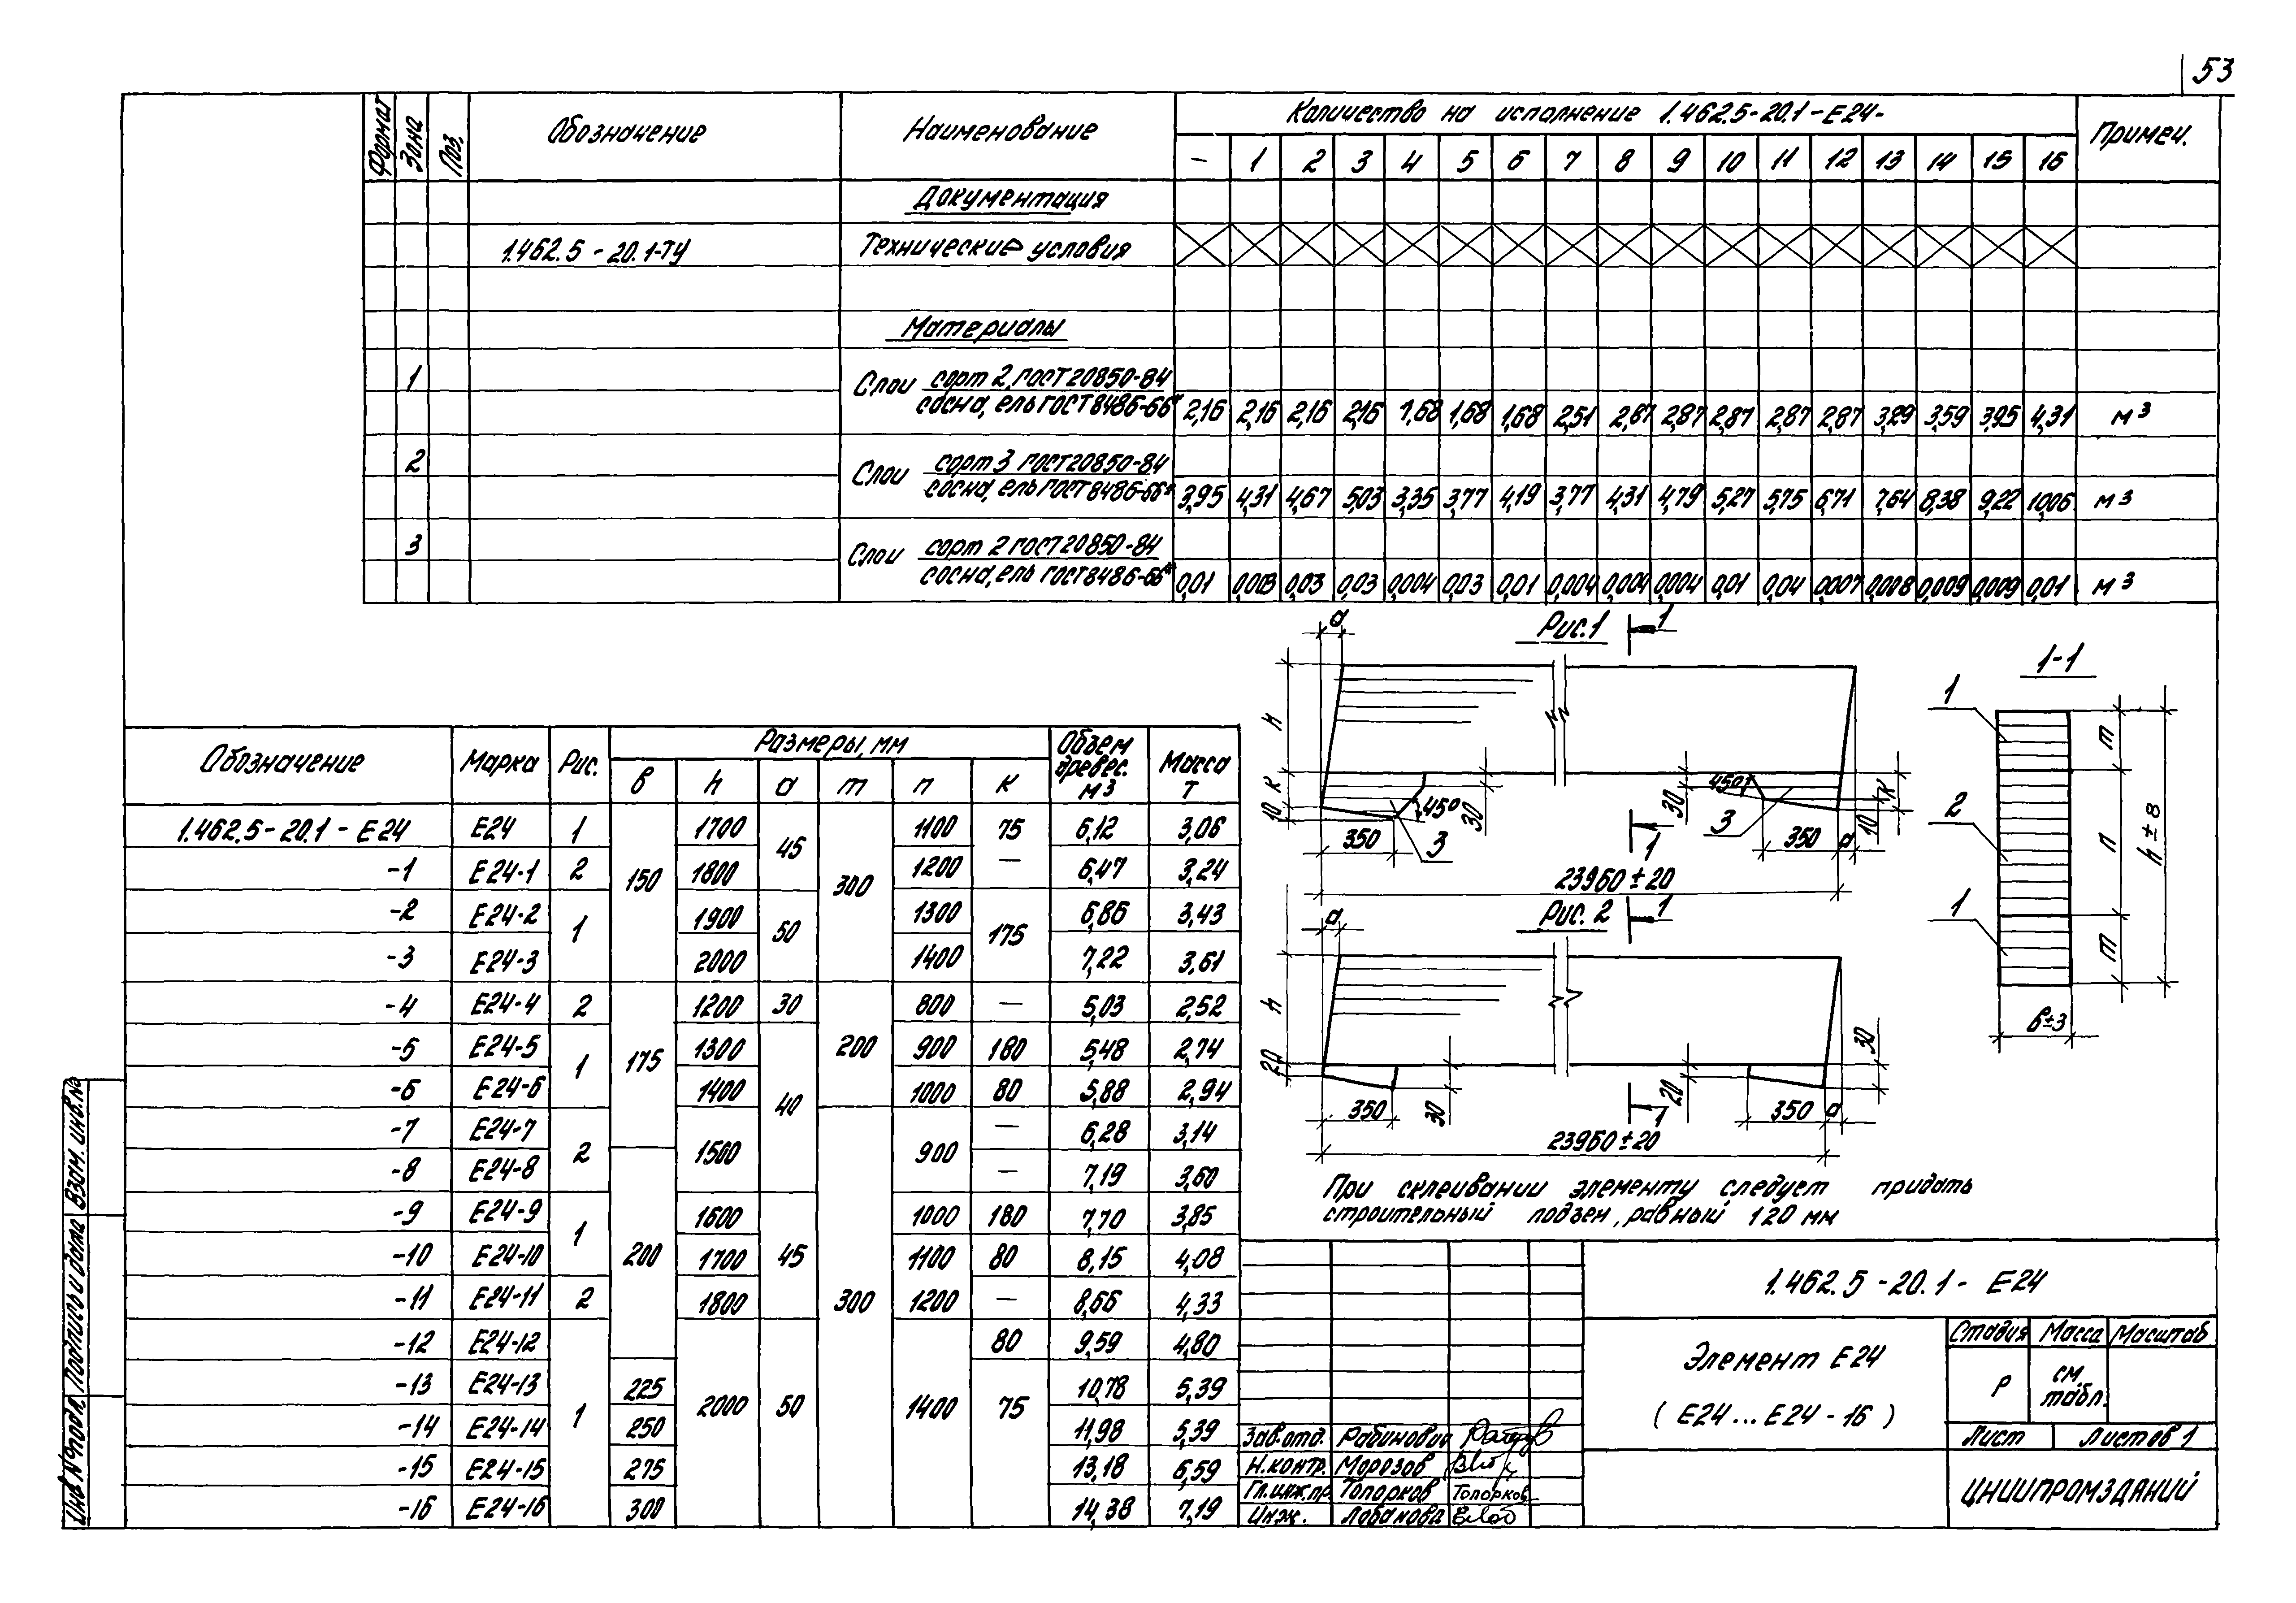 53
Формат Зона Поз. Обозначение Наименование Количество на исполнение 1.462.5-20.1-Е24- Примеч.
- 1 2 3 4 5 6 7 8 9 10 11 12 13 14 15 16
Документация
1.462.5-20.1-ТУ Технические условия
Материалы
1 Слои сорт 2, ГОСТ 20850-84
сосна, ель ГОСТ 8486-66* 2,16 2,16 2,16 2,16 1,68 1,68 1,68 2,51 2,87 2,87 2,87 2,87 2,87 3,29 3,59 3,95 4,31 м3
2 Слои сорт 3 ГОСТ 20850-84
сосна, ель ГОСТ 8486-66* 3,95 4,31 4,67 5,03 3,35 3,77 4,19 3,77 4,31 4,79 5,27 5,75 6,71 7,64 8,38 9,22 10,06 м3
3 Слои сорт 2 ГОСТ 20850-84
сосна, ель ГОСТ 8486-66* 0,01 0,003 0,03 0,03 0,004 0,03 0,01 0,004 0,004 0,004 0,01 0,04 0,007 0,008 0,009 0,009 0,01 м3
Обозначение Марка Рис. Размеры, мм Объем древес. м3 Масса Т
в h а m п к
1.462.5-20.1-Е24 Е24 1 150 1700 45 300 1100 75 6,12 3,06
-1 Е24-1 2 1800 1200 — 6,47 3,24
-2 Е24-2 1 1900 50 1300 175 6,86 3,43
-3 Е24-3 2000 1400 7,22 3,61
-4 Е24-4 2 175 1200 30 200 800 — 5,03 2,52
-5 Е24-5 1 1300 40 900 180 5,48 2,74
-6 Е24-6 1400 1000 80 5,88 2,94
-7 Е24-7 2 1500 300 900 — 6,28 3,14
-8 Е24-8 200 — 7,19 3,60
-9 Е24-9 1 1600 45 1000 180 7,70 3,85
-10 Е24-10 1700 1100 80 8,15 4,08
-11 Е24-11 2 1800 1200 — 8,66 4,33
-12 Е24-12 1 2000 50 1400 80 9,59 4,80
-13 Е24-13 225 75 10,78 5,39
-14 Е24-14 250 11,98 5,39
-15 Е24-15 275 13,18 6,59
-16 Е24-16 300 14,38 7,19
Рис.1
а 1
h
к
10
350
45°
3
30
30
45°
3
350
а
10
к
1
23960±20
Рис. 2
а 1
h
20
350
30
20
350
а
30
1
23960±20
1-1
1
2
1
m
п
m
h±8
в±3
При склеивании элементу следует придать
строительный подъем, равный 120 мм
1.462.5-20.1-Е24
Элемент Е24
(Е24...Е24-16)
Стадия Масса Масштаб
Р см. табл.
Лист Листов 1
ЦНИИПРОМЗДАНИЙ
Зав.отд. Рабинович
Н.контр. Морозов
Гл.инж.пр. Топорков Топорков
Инж. Лобанова
Инв.№ подл. Подпись и дата Взам. инв.№